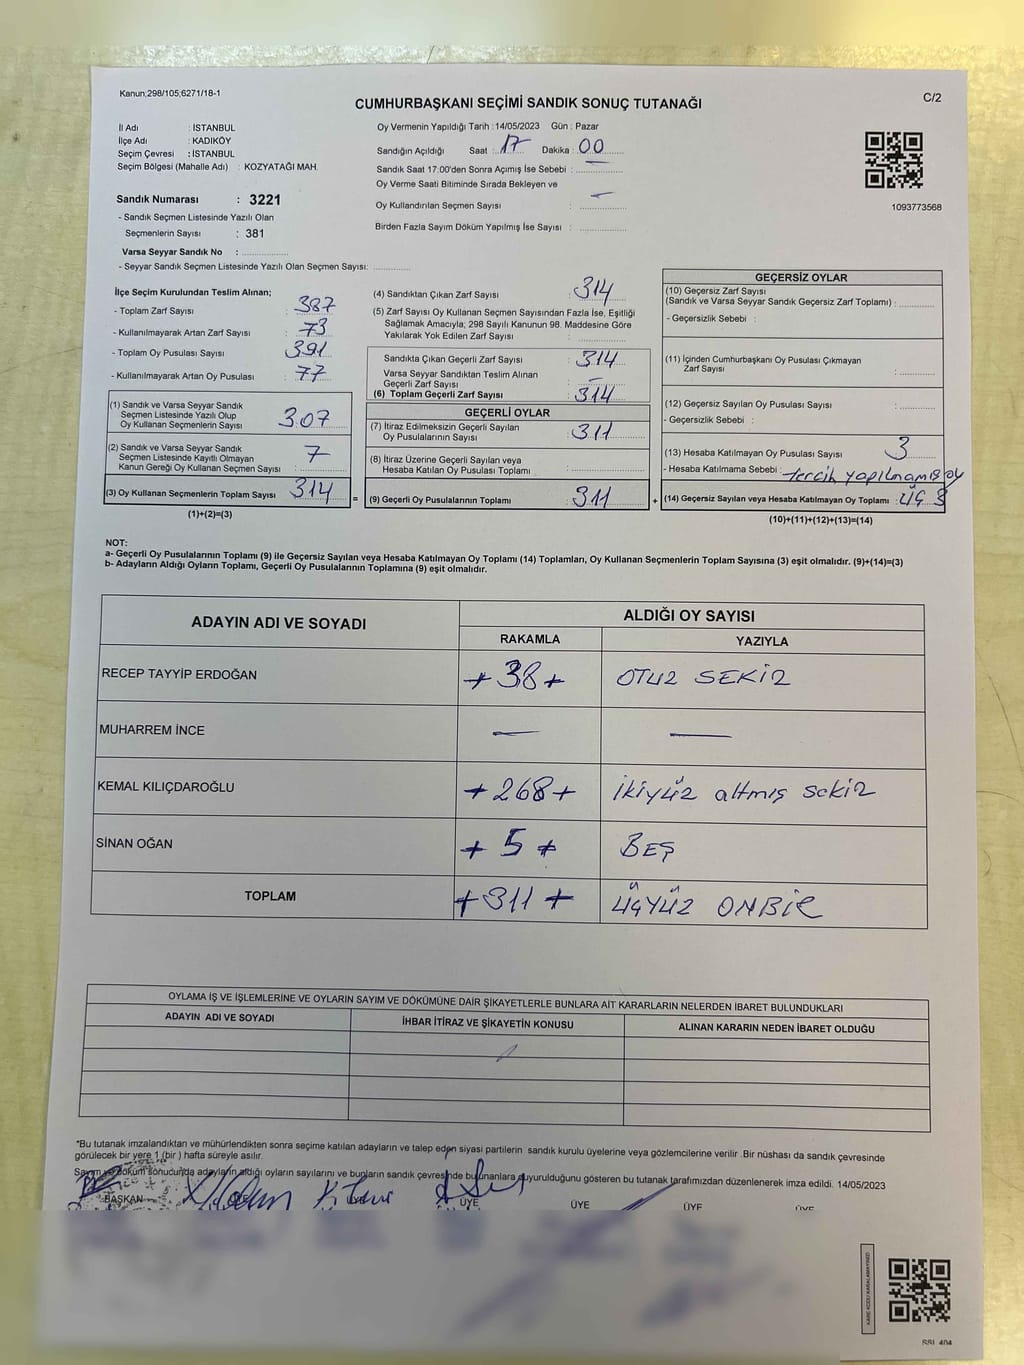 Kanun;298/105;6271/18-1
CUMHURBAŞKANI SEÇİMİ SANDIK SONUÇ TUTANAĞI
C/2
İl Adı : İSTANBUL
İlçe Adı : KADIKÖY
Seçim Çevresi : İSTANBUL
Seçim Bölgesi (Mahalle Adı) : KOZYATAĞI MAH.
Oy Vermenin Yapıldığı Tarih : 14/05/2023 Gün : Pazar
Sandığın Açıldığı Saat : 17 Dakika : 00
Sandık Saat 17:00'den Sonra Açımış İse Sebebi : —
Oy Verme Saati Bitiminde Sırada Bekleyen ve
Oy Kullandırılan Seçmen Sayısı : —
Birden Fazla Sayım Döküm Yapılmış İse Sayısı :
1093773568
Sandık Numarası : 3221
- Sandık Seçmen Listesinde Yazılı Olan
Seçmenlerin Sayısı : 381
Varsa Seyyar Sandık No :
- Seyyar Sandık Seçmen Listesinde Yazılı Olan Seçmen Sayısı:
İlçe Seçim Kurulundan Teslim Alınan;
- Toplam Zarf Sayısı : 387
- Kullanılmayarak Artan Zarf Sayısı : 73
- Toplam Oy Pusulası Sayısı : 391
- Kullanılmayarak Artan Oy Pusulası : 77
(1) Sandık ve Varsa Seyyar Sandık
Seçmen Listesinde Yazılı Olup
Oy Kullanan Seçmenlerin Sayısı : 307
(2) Sandık ve Varsa Seyyar Sandık
Seçmen Listesinde Kayıtlı Olmayan
Kanun Gereği Oy Kullanan Seçmen Sayısı : 7
(3) Oy Kullanan Seçmenlerin Toplam Sayısı : 314
(1)+(2)=(3)
=
(4) Sandıktan Çıkan Zarf Sayısı : 314
(5) Zarf Sayısı Oy Kullanan Seçmen Sayısından Fazla İse, Eşitliği
Sağlamak Amacıyla; 298 Sayılı Kanunun 98. Maddesine Göre
Yakılarak Yok Edilen Zarf Sayısı :
Sandıkta Çıkan Geçerli Zarf Sayısı : 314
Varsa Seyyar Sandıktan Teslim Alınan
Geçerli Zarf Sayısı : —
(6) Toplam Geçerli Zarf Sayısı : 314
GEÇERLİ OYLAR
(7) İtiraz Edilmeksizin Geçerli Sayılan
Oy Pusulalarının Sayısı : 311
(8) İtiraz Üzerine Geçerli Sayılan veya
Hesaba Katılan Oy Pusulası Toplamı :
(9) Geçerli Oy Pusulalarının Toplamı : 311
+
GEÇERSİZ OYLAR
(10) Geçersiz Zarf Sayısı
(Sandık ve Varsa Seyyar Sandık Geçersiz Zarf Toplamı) :
- Geçersizlik Sebebi :
(11) İçinden Cumhurbaşkanı Oy Pusulası Çıkmayan
Zarf Sayısı :
(12) Geçersiz Sayılan Oy Pusulası Sayısı :
- Geçersizlik Sebebi :
(13) Hesaba Katılmayan Oy Pusulası Sayısı : 3
- Hesaba Katılmama Sebebi : tercih yapılmamış oy
(14) Geçersiz Sayılan veya Hesaba Katılmayan Oy Toplamı : ÜÇ 3
(10)+(11)+(12)+(13)=(14)
NOT:
a- Geçerli Oy Pusulalarının Toplamı (9) ile Geçersiz Sayılan veya Hesaba Katılmayan Oy Toplamı (14) Toplamları, Oy Kullanan Seçmenlerin Toplam Sayısına (3) eşit olmalıdır. (9)+(14)=(3)
b- Adayların Aldığı Oyların Toplamı, Geçerli Oy Pusulalarının Toplamına (9) eşit olmalıdır.
ADAYIN ADI VE SOYADI
ALDIĞI OY SAYISI
RAKAMLA YAZIYLA
RECEP TAYYİP ERDOĞAN +38+ OTUZ SEKİZ
MUHARREM İNCE — —
KEMAL KILIÇDAROĞLU +268+ İkiyüz altmış sekiz
SİNAN OĞAN +5+ BEŞ
TOPLAM +311+ ÜÇYÜZ ONBİR
OYLAMA İŞ VE İŞLEMLERİNE VE OYLARIN SAYIM VE DÖKÜMÜNE DAİR ŞİKAYETLERLE BUNLARA AİT KARARLARIN NELERDEN İBARET BULUNDUKLARI
ADAYIN ADI VE SOYADI İHBAR İTİRAZ VE ŞİKAYETİN KONUSU ALINAN KARARIN NEDEN İBARET OLDUĞU
*Bu tutanak imzalandıktan ve mühürlendikten sonra seçime katılan adayların ve talep eden siyasi partilerin sandık kurulu üyelerine veya gözlemcilerine verilir .Bir nüshası da sandık çevresinde
görülecek bir yere 1 (bir ) hafta süreyle asılır.
Sayım ve döküm sonucunda adayların aldığı oyların sayılarını ve bunların sandık çevresinde bulunanlara duyurulduğunu gösteren bu tutanak tarafımızdan düzenlenerek imza edildi. 14/05/2023
BAŞKAN ÜYE ÜYE ÜYE ÜYE